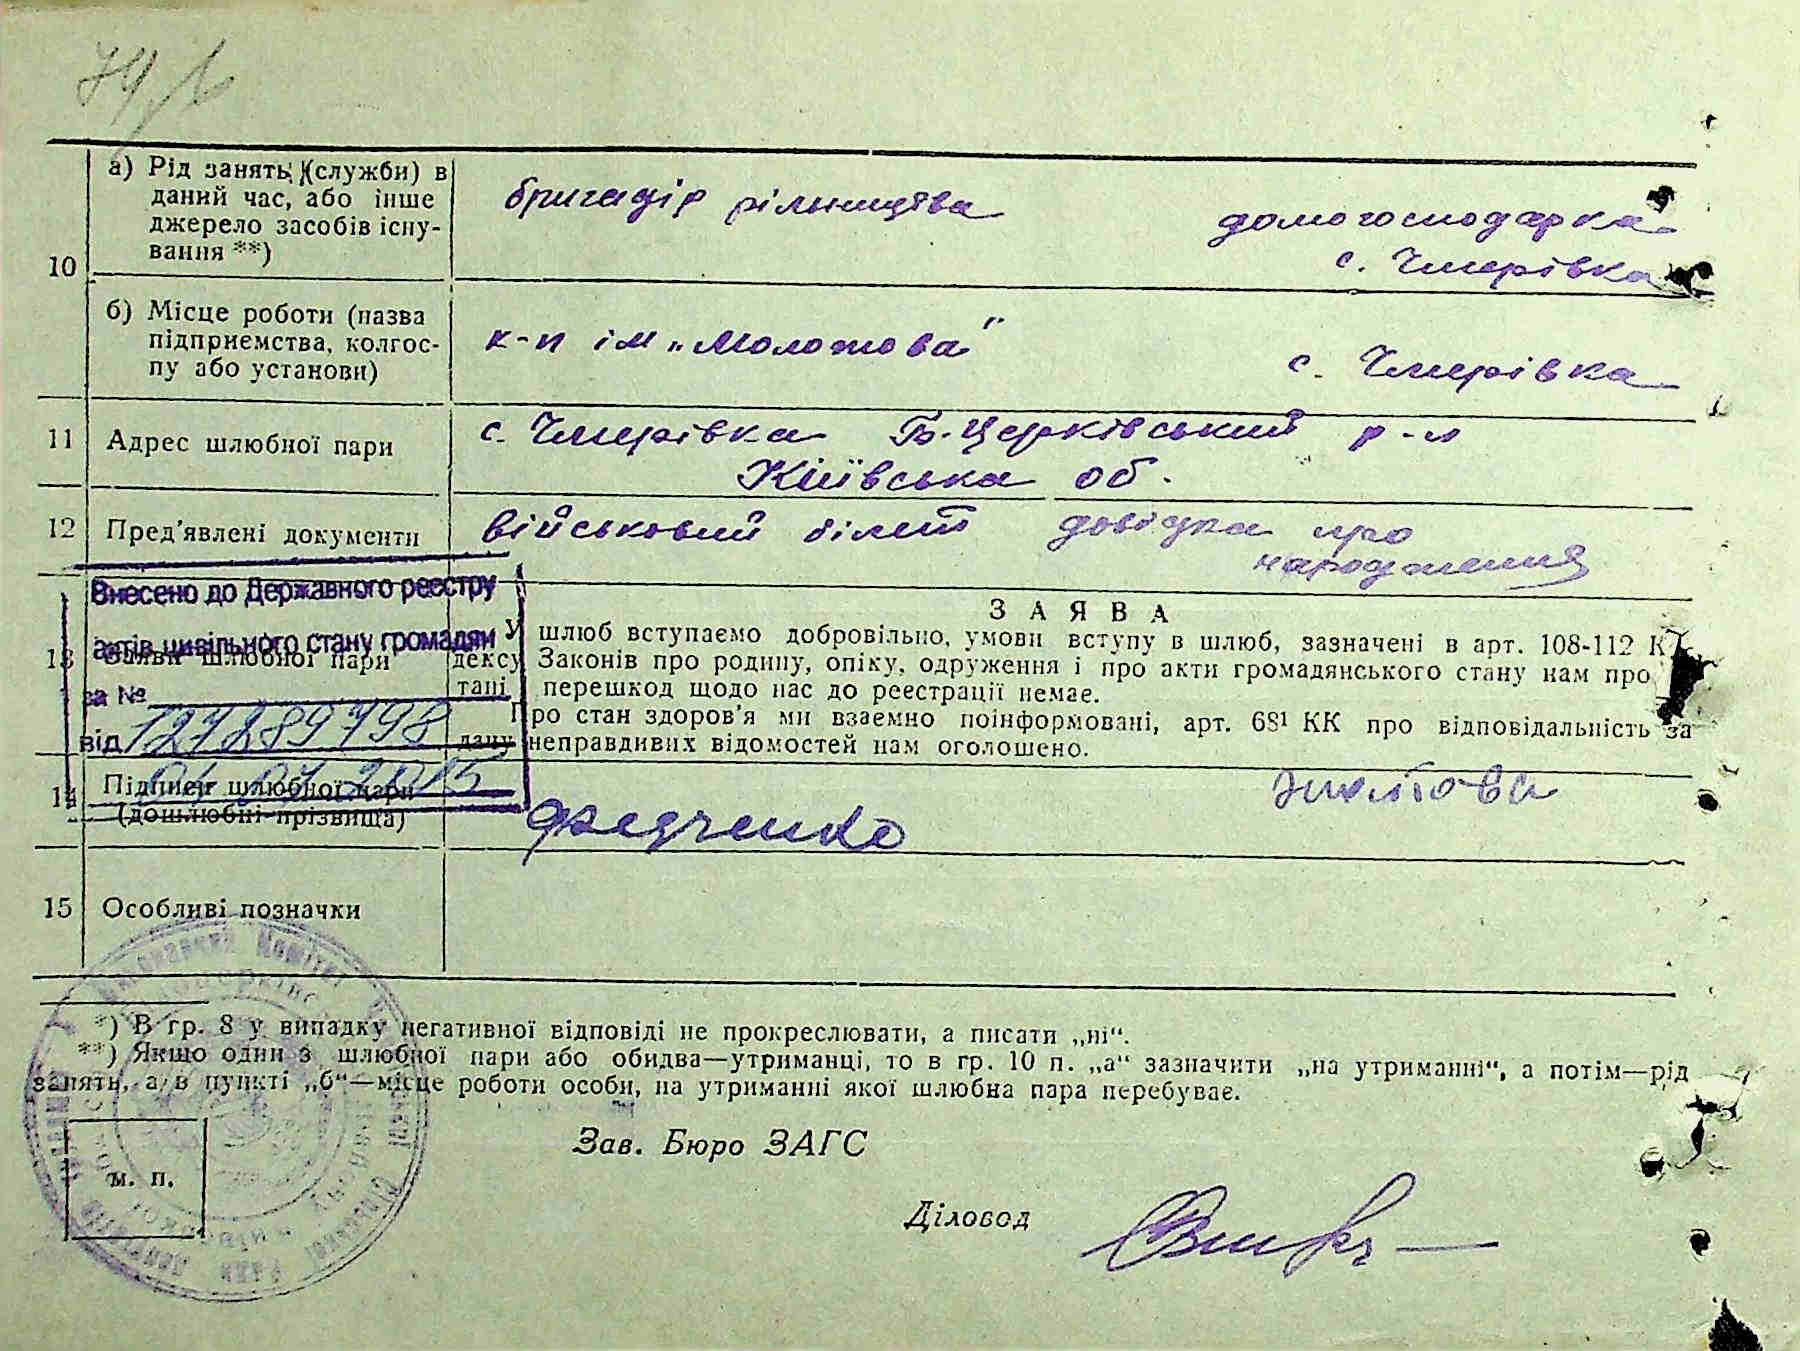 10
а) Рід занять (служби) в
даний час, або інше
джерело засобів існу-
вання **)
бригадір рільництва
домогосподарка
с. Чмерівка
б) Місце роботи (назва
підприємства, колгос-
пу або установи)
к-п ім „Молотова"
с. Чмерівка
11
Адрес шлюбної пари
с. Чмерівка Б.Церківський р-н
Київська об.
12
Пред'явлені документи
військовий білет
довідка про
народження
Внесено до Державного реєстру
актів цивільного стану громадян
за №
127289798
від
01 07 2015
13
Заяви шлюбної пари
ЗАЯВА
У шлюб вступаємо добровільно, умови вступу в шлюб, зазначені в арт. 108-112 К
дексу Законів про родину, опіку, одруження і про акти громадянського стану нам про
тані перешкод щодо нас до реєстрації немає.
Про стан здоров'я ми взаємно поінформовані, арт. 68¹ КК про відповідальність за
дачу неправдивих відомостей нам оголошено.
14
Підписи шлюбної пари
(дошлюбні прізвища)
Федченко
15
Особливі позначки
*) В гр. 8 у випадку негативної відповіді не прокреслювати, а писати „ні“.
**) Якщо один з шлюбної пари або обидва—утриманці, то в гр. 10 п. „а“ зазначити „на утриманні“, а потім—рід
занять, а в пункті „б“—місце роботи особи, на утриманні якої шлюбна пара перебуває.
Зав. Бюро ЗАГС
м. п.
Діловод